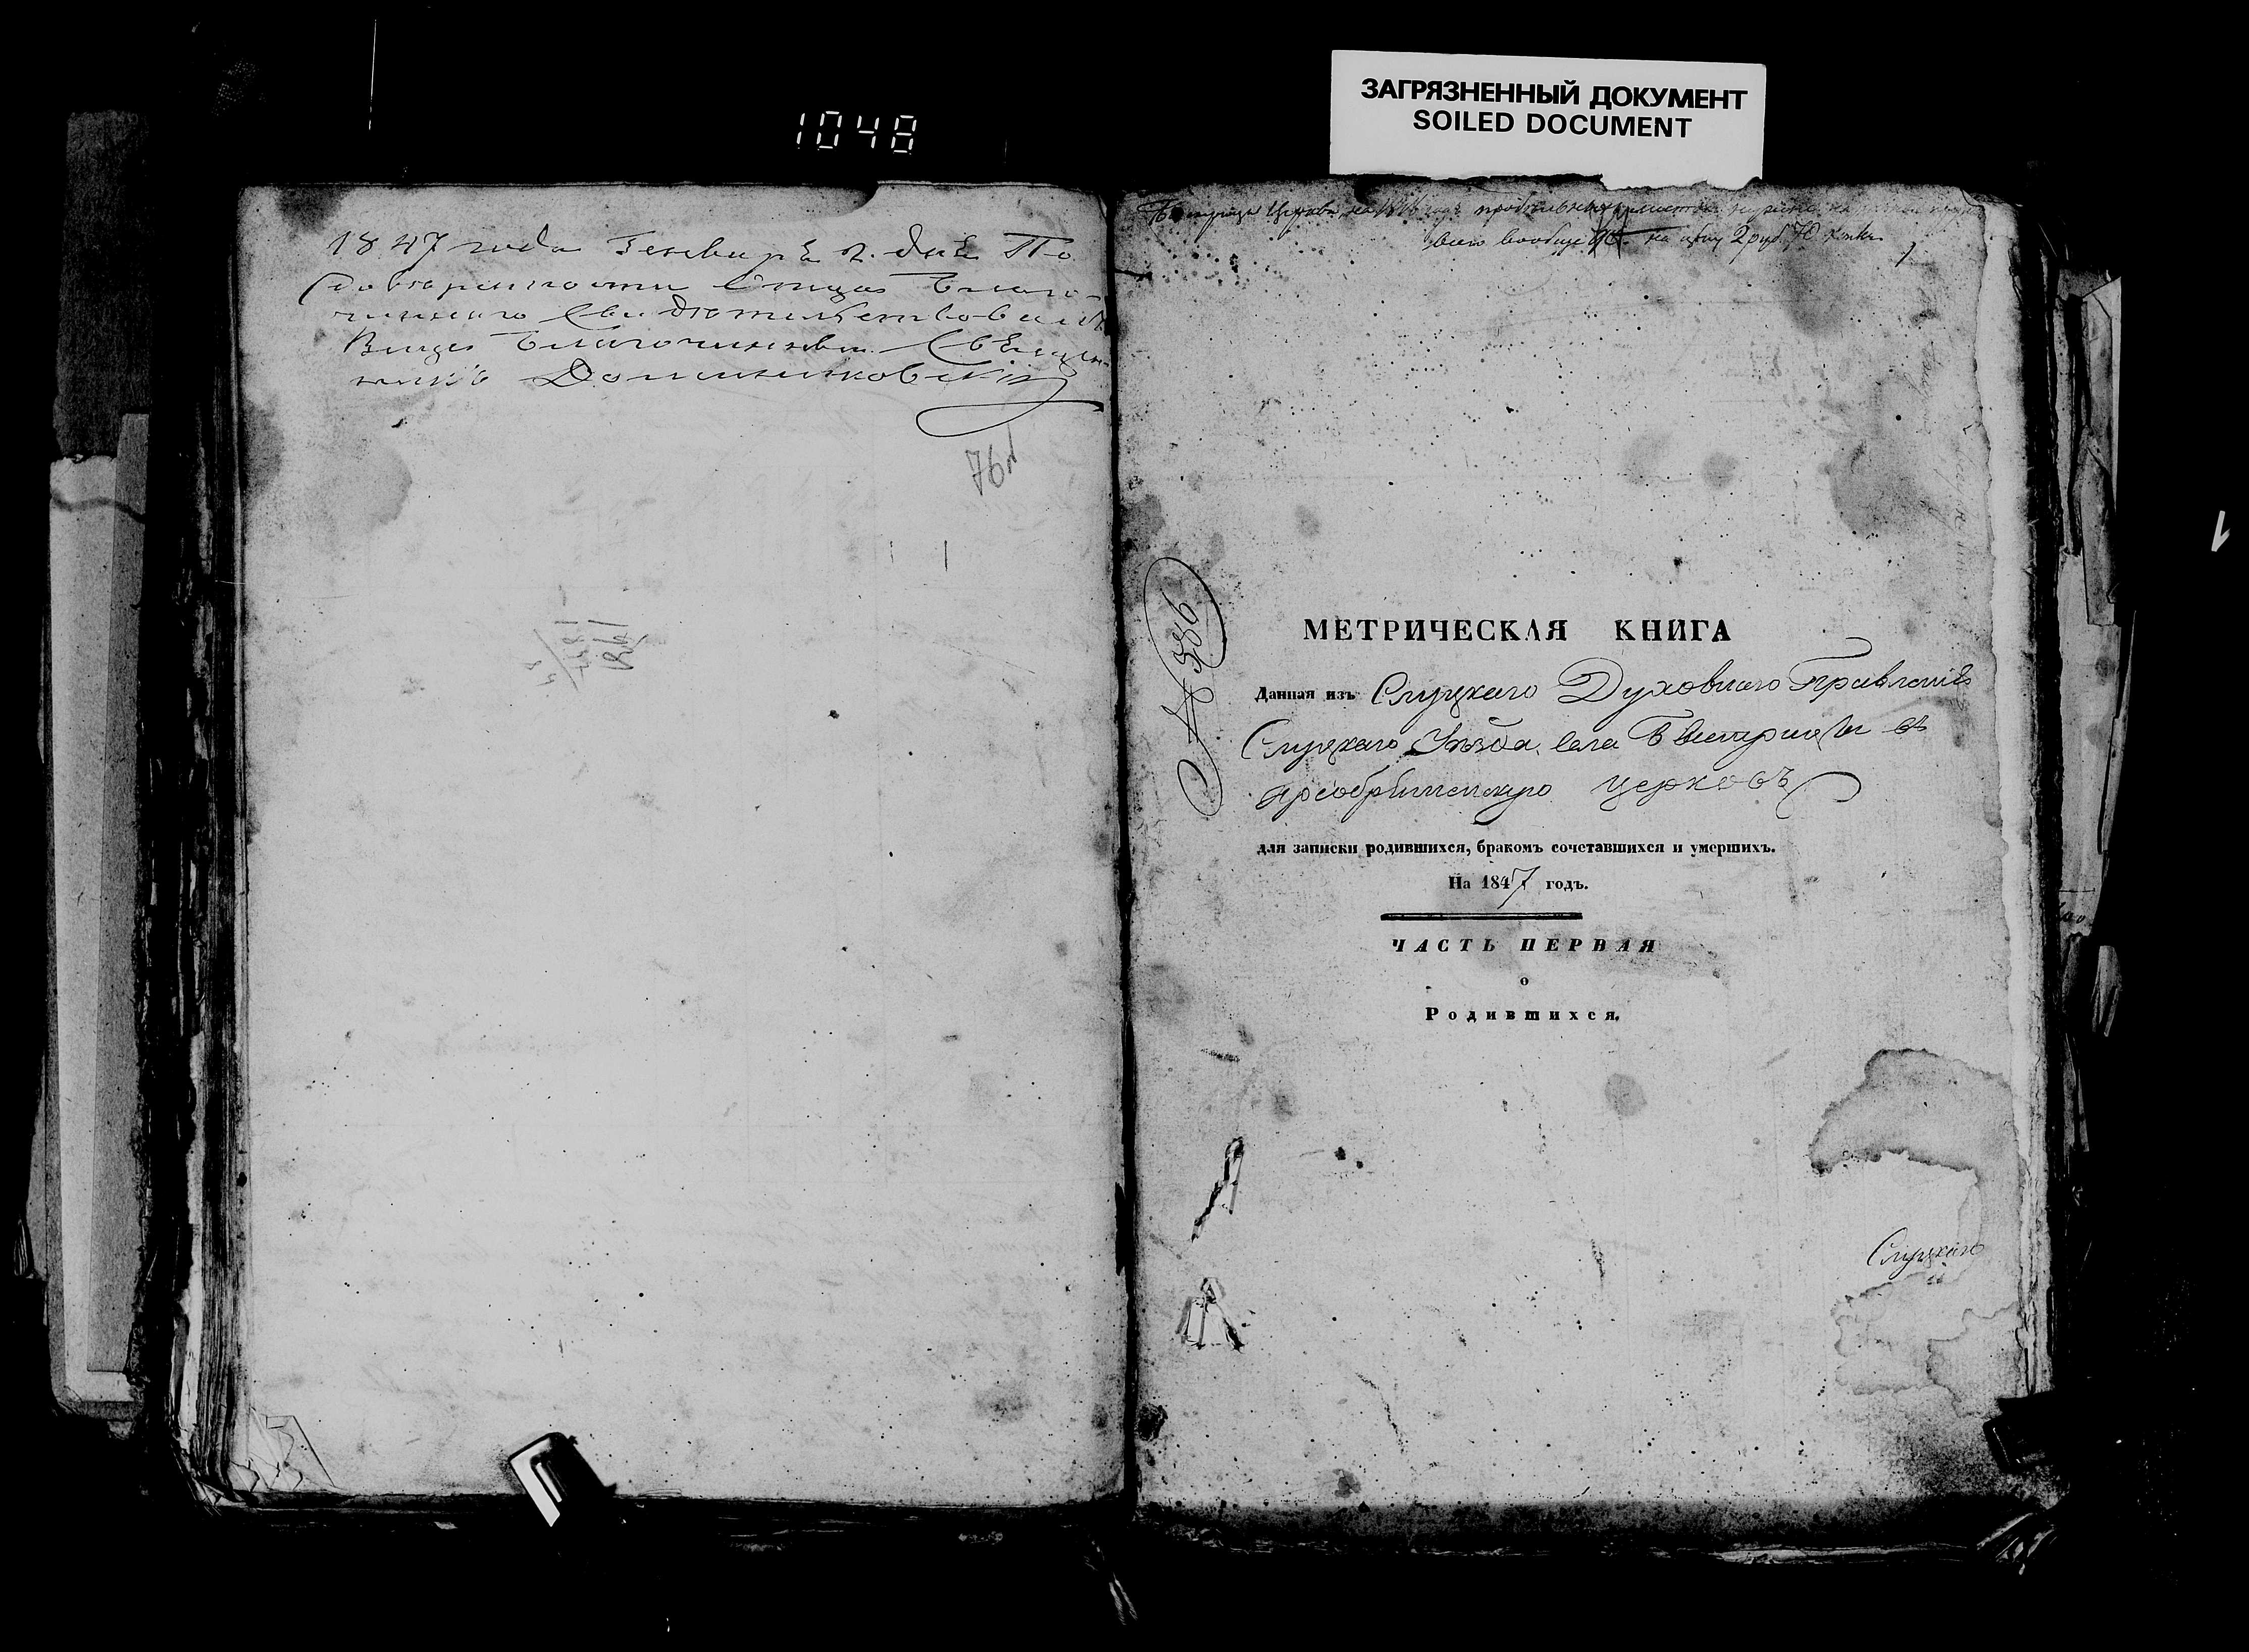 ЗАГРЯЗНЕННЫЙ ДОКУМЕНТ
SOILED DOCUMENT
1048
1847 года Генваря 2. дня По
довѣренности Отца Благо-
чиннаго Свидѣтельствовалъ
Вице Благочинный Священ-
никъ
76
всего вообще на цѣну 2 руб. 70 копѣекъ
№ 386
МЕТРИЧЕСКАЯ КНИГА
Данная изъ Слуцкаго Духовнаго Правленія
Слуцкаго Уѣзда, села въ
преображенскую церковь
для записки родившихся, бракомъ сочетавшихся и умершихъ.
На 1847 годъ.
ЧАСТЬ ПЕРВАЯ
о
Родившихся.
Слуцкаго